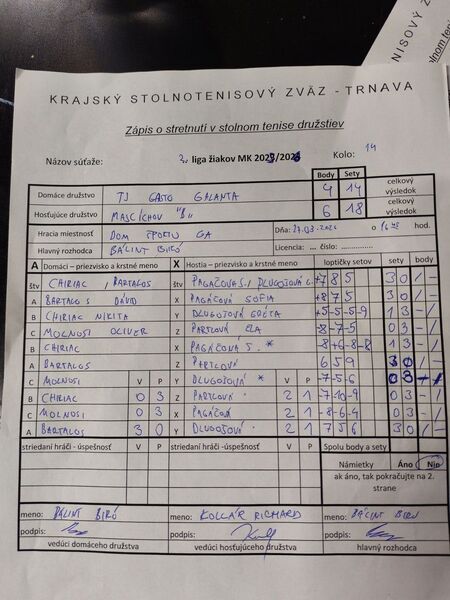 KRAJSKÝ STOLNOTENISOVÝ ZVÄZ - TRNAVA
Zápis o stretnutí v stolnom tenise družstiev
Názov súťaže: liga žiakov MK Kolo: 14
Body Sety
Domáce družstvo TJ GASTO GALANTA 4 14 celkový výsledok
Hosťujúce družstvo "B" 6 18 celkový výsledok
Hracia miestnosť DOM ŠPORTU GA Dňa: o hod.
Hlavný rozhodca BÁLINT BIRÓ Licencia: ... číslo:
A Domáci – priezvisko a krstné meno X Hostia – priezvisko a krstné meno loptičky setov sety body
štv CHIRIAC, BARTALOS štv +785 30 1/-
A BARTALOS DÁVID X PAGÁČOVÁ SOFIA +875 30 1/-
B CHIRIAC NIKITA Y +5-5-5-9 13 -/
C MOLNOSI OLIVER Z PARTLOVÁ ELA -8-7-5 03 -/
B CHIRIAC X PAGÁČOVÁ S. * -8+6-8-8 13 -/
A BARTALOS Z PARTLOVÁ 659 30 1/-
C MOLNOSI V P Y * V P -7-5-6 03
B CHIRIAC 0 3 Z PARTLOVÁ 2 1 -7-10-9 03 -/
C MOLNOSI 0 3 X PAGÁČOVÁ 2 1 -8-6-4 03 -/
A BARTALOS 3 0 Y 2 1 756 30 1/-
striedaní hráči - úspešnosť V P striedaní hráči - úspešnosť V P Spolu body a sety
Námietky Áno Nie
ak áno, tak pokračujte na 2. strane
meno: BÁLINT BIRÓ meno: KOLLÁR RICHARD meno: BÁLINT BIRÓ
podpis: podpis: podpis:
vedúci domáceho družstva vedúci hosťujúceho družstva hlavný rozhodca